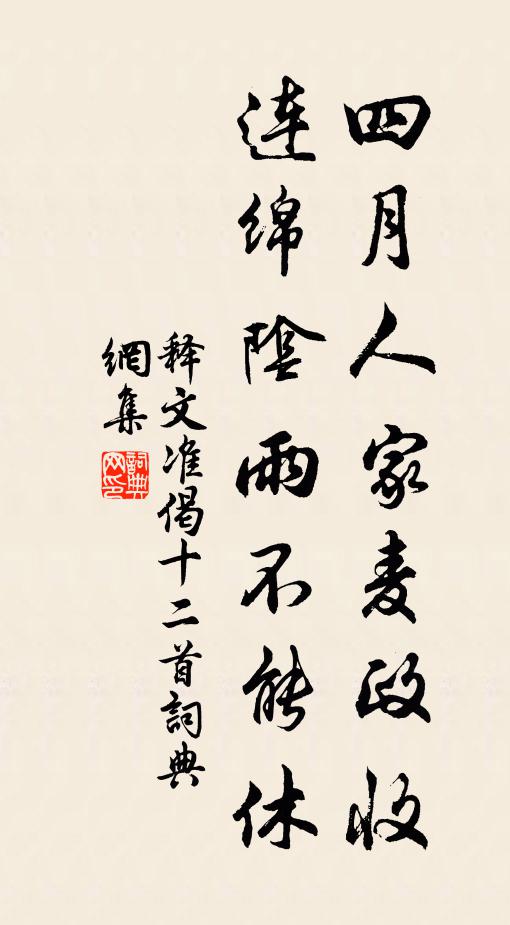 四月人家麦政收
連綿陰雨不能休
释文准偈十二首詞典
網集
詞典網印